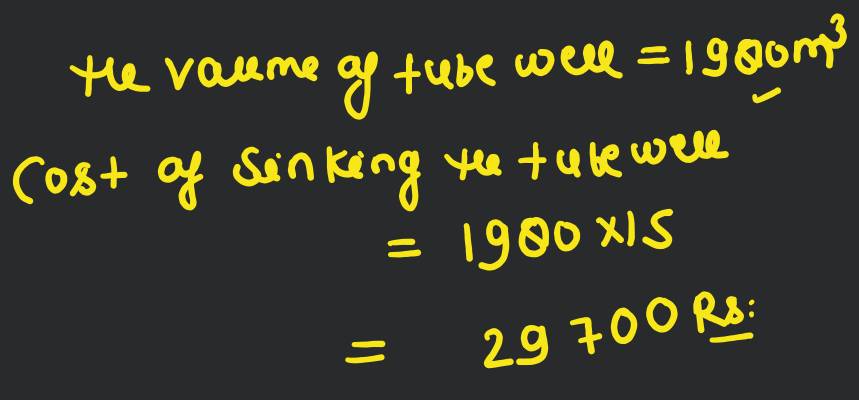 the volume of tube well = 1980m³
Cost of Sinking the tube well
= 1980 × 15
= 29700 Rs.